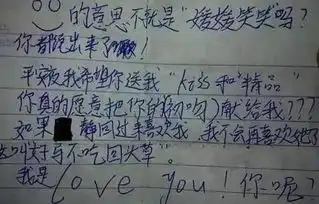 的意思不就是“媛媛笑笑”吗?
你都说出来了!
平安夜我希望你送我“kiss和“精品”
你真的愿意把你的(初吻)献给我???
如果 静回过来喜欢我,我不会再喜欢她了
这叫好马不吃回头草”。
我是Love you!你呢?